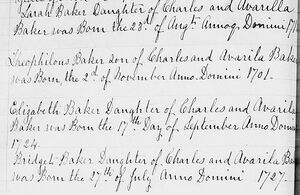 Sarah Baker Daughter of Charles and Avarilla
Baker was Born the 23d of Augt. Annoq. Domini 17
Theophilous Baker son of Charles and Avarila Baker
was Born the 2d of November Anno. Domini 1701.
Elizabeth Baker Daughter of Charles and Avarila
Baker was Born the 17th Day of September Anno Domini
1724.
Bridget Baker Daughter of Charles and Avarila
was Born the 27th of July Anno Domini 1727.